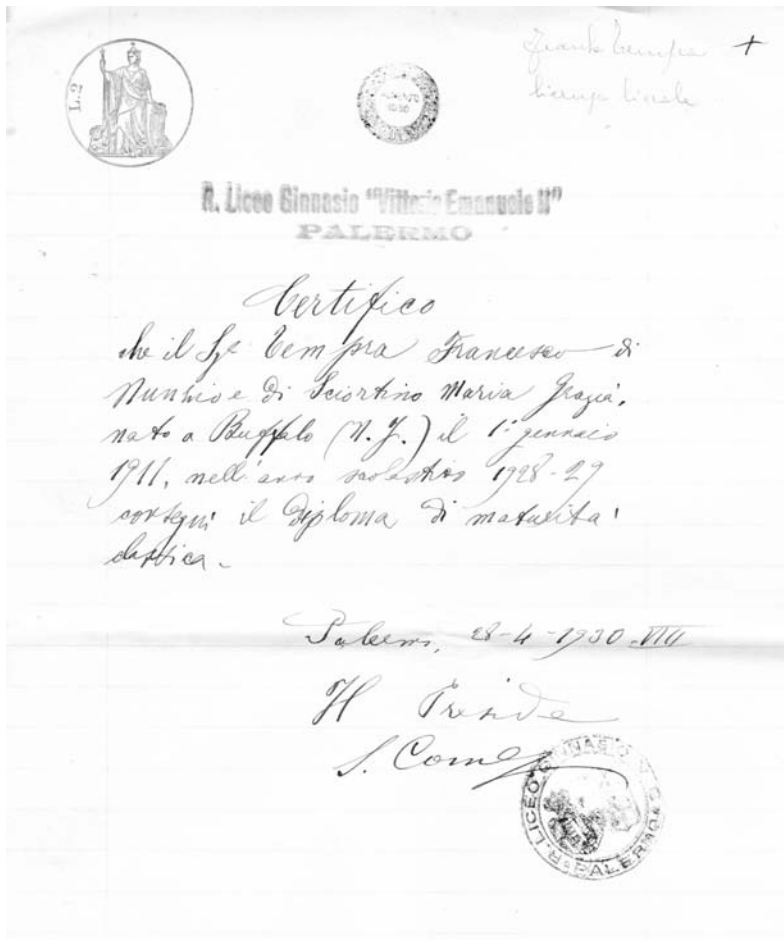 L.2
+
R. Liceo Ginnasio "Vittorio Emanuele II"
PALERMO
Certifico
che il Sig. Tempra Francesco di
Nunzio e di Sciortino Maria Grazia,
nato a Buffalo (N.Y.) il 1° gennaio
1911, nell'anno scolastico 1928-29
conseguì il diploma di maturità
classica.
Palermo, 28-4-1930-VIII
Il Preside
S.
R. LICEO GINNASIO V. E. PALERMO